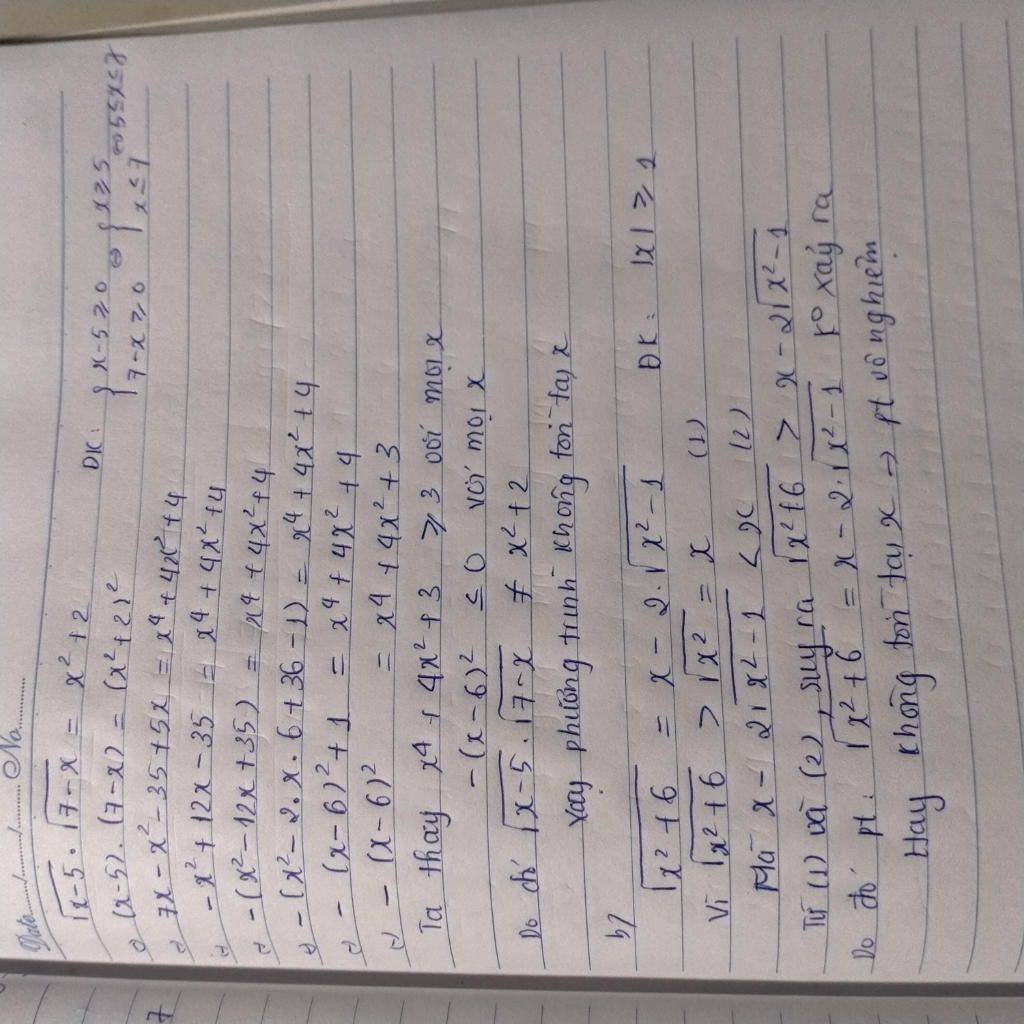 Date...../...../.....No..........
√x-5 . √7-x = x² + 2 ĐK: { x-5 ≥ 0 ⇔ { x ≥ 5
7-x ≥ 0 x ≤ 7 ⇔ 5 ≤ x ≤ 7
⇔ (x-5).(7-x) = (x²+2)²
⇔ 7x - x² - 35 + 5x = x⁴ + 4x² + 4
⇔ -x² + 12x - 35 = x⁴ + 4x² + 4
⇔ -(x² - 12x + 35) = x⁴ + 4x² + 4
⇔ -(x² - 2.x.6 + 36 - 1) = x⁴ + 4x² + 4
⇔ -(x-6)² + 1 = x⁴ + 4x² + 4
⇔ -(x-6)² = x⁴ + 4x² + 3
Ta thay x⁴ + 4x² + 3 ≥ 3 với mọi x
-(x-6)² ≤ 0 với mọi x
Do đó √x-5 . √7-x ≠ x² + 2
Vay phương trình không tồn tại x
b)
√x²+6 = x - 2.√x²-1 ĐK: |x| ≥ 1
Vì √x²+6 > √x² = x (1)
Mà x - 2√x²-1 < x (2)
Từ (1) và (2), suy ra √x²+6 > x - 2√x²-1
Do đó pt: √x²+6 = x - 2.√x²-1 k° xảy ra
Hay không tồn tại x ⇒ pt vô nghiệm
7